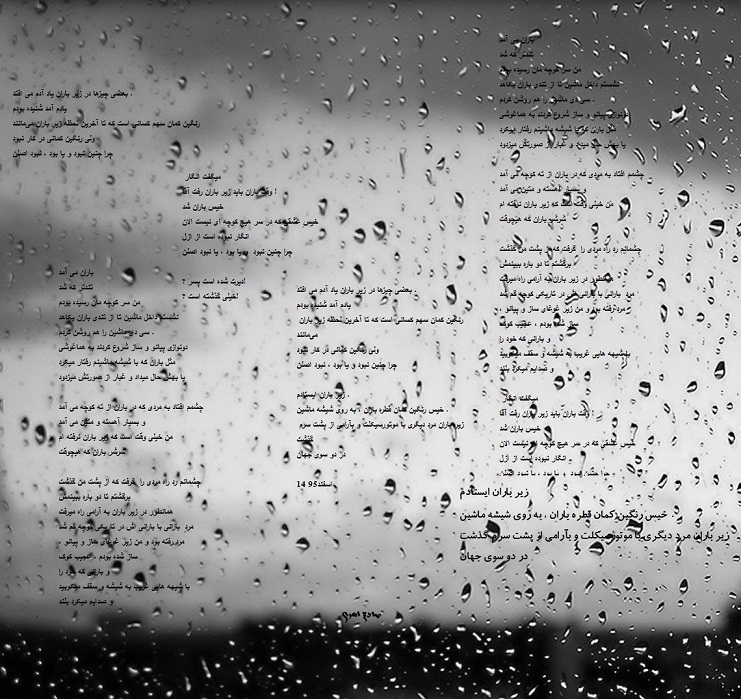 باران می آمد
تندتر که شد
من سر کوچه مان رسیده بودم
نشستم داخل ماشین تا از تندی باران بکاهد
سی دی ماشین را هم روشن کردم .
دونوازی پیانو و ساز شروع کردند به هماغوشی
مثل باران که با شیشه ماشینم رفتار میکرد
یا بهش حال میداد و غبار از صورتش میزدود
چشمم افتاد به مردی که در باران از ته کوچه می آمد
و بسیار آهسته و متین می آمد
من خیلی وقت است که زیر باران نرفته ام
شرشر باران که هیچوقت
چشمانم رد راه مردی را گرفت که از پشت من گذشت
برگشتم تا دو باره ببینمش
همانطور در زیر باران به آرامی راه میرفت
مرد بارانی با بارانی اش در تاریکی کوچه گم شد
مرد رفته بود و من زیر غوغای ساز و پیانو ،
ساز شده بودم ، عجیب کوک
و بارانی که خود را
با شیهه هایی غریب به شیشه و سقف میکوبید
و صدایم میکرد بلند
میگفت انگار
وقت باران باید زیر باران رفت آقا !
خیس باران شد
خیس عشقی که در سر هیچ کوچه ای نیست الان
انگار نبوده است از ازل
چرا چنین نبود و یا بود ، یا نبود اصلن
زیر باران ایستادم
خیس رنگین کمان قطره باران ، به روی شیشه ماشین
زیر باران مرد دیگری با موتورسیکلت و بآرامی از پشت سرم گذشت
در دو سوی جهان
بعضی چیزها در زیر باران یاد آدم می افتد .
یادم آمد شنیده بودم
رنگین کمان سهم کسانی است که تا آخرین لحظه زیر باران
میمانند
ولی رنگین کمانی در کار نبود
چرا چنین نبود و یا بود ، نبود اصلن
زیر باران ایستادم
خیس رنگین کمان قطره باران ، به روی شیشه ماشین
زیر باران مرد دیگری با موتورسیکلت و بآرامی از پشت سرم
گذشت
در دو سوی جهان
14 اسفند95
میگفت انگار
وقت باران باید زیر باران رفت آقا !
خیس باران شد
خیس عشقی که در سر هیچ کوچه ای نیست الان
انگار نبوده است از ازل
چرا چنین نبود و یا بود ، یا نبود اصلن
دیرت شده است پسر ؟
خیلی گذشته است ؟
بعضی چیزها در زیر باران یاد آدم می افتد .
یادم آمد شنیده بودم
رنگین کمان سهم کسانی است که تا آخرین لحظه زیر باران میمانند
ولی رنگین کمانی در کار نبود
چرا چنین نبود و یا بود ، نبود اصلن
باران می آمد
تندتر که شد
من سر کوچه مان رسیده بودم
نشستم داخل ماشین تا از تندی باران بکاهد
سی دی ماشین را هم روشن کردم .
دونوازی پیانو و ساز شروع کردند به هماغوشی
مثل باران که با شیشه ماشینم رفتار میکرد
یا بهش حال میداد و غبار از صورتش میزدود
چشمم افتاد به مردی که در باران از ته کوچه می آمد
و بسیار آهسته و متین می آمد
من خیلی وقت است که زیر باران نرفته ام
شرشر باران که هیچوقت
چشمانم رد راه مردی را گرفت که از پشت من گذشت
برگشتم تا دو باره ببینمش
همانطور در زیر باران به آرامی راه میرفت
مرد بارانی با بارانی اش در تاریکی کوچه گم شد
مرد رفته بود و من زیر غوغای ساز و پیانو ،
ساز شده بودم ، عجیب کوک
و بارانی که خود را
با شیهه هایی غریب به شیشه و سقف میکوبید
و صدایم میکرد بلند